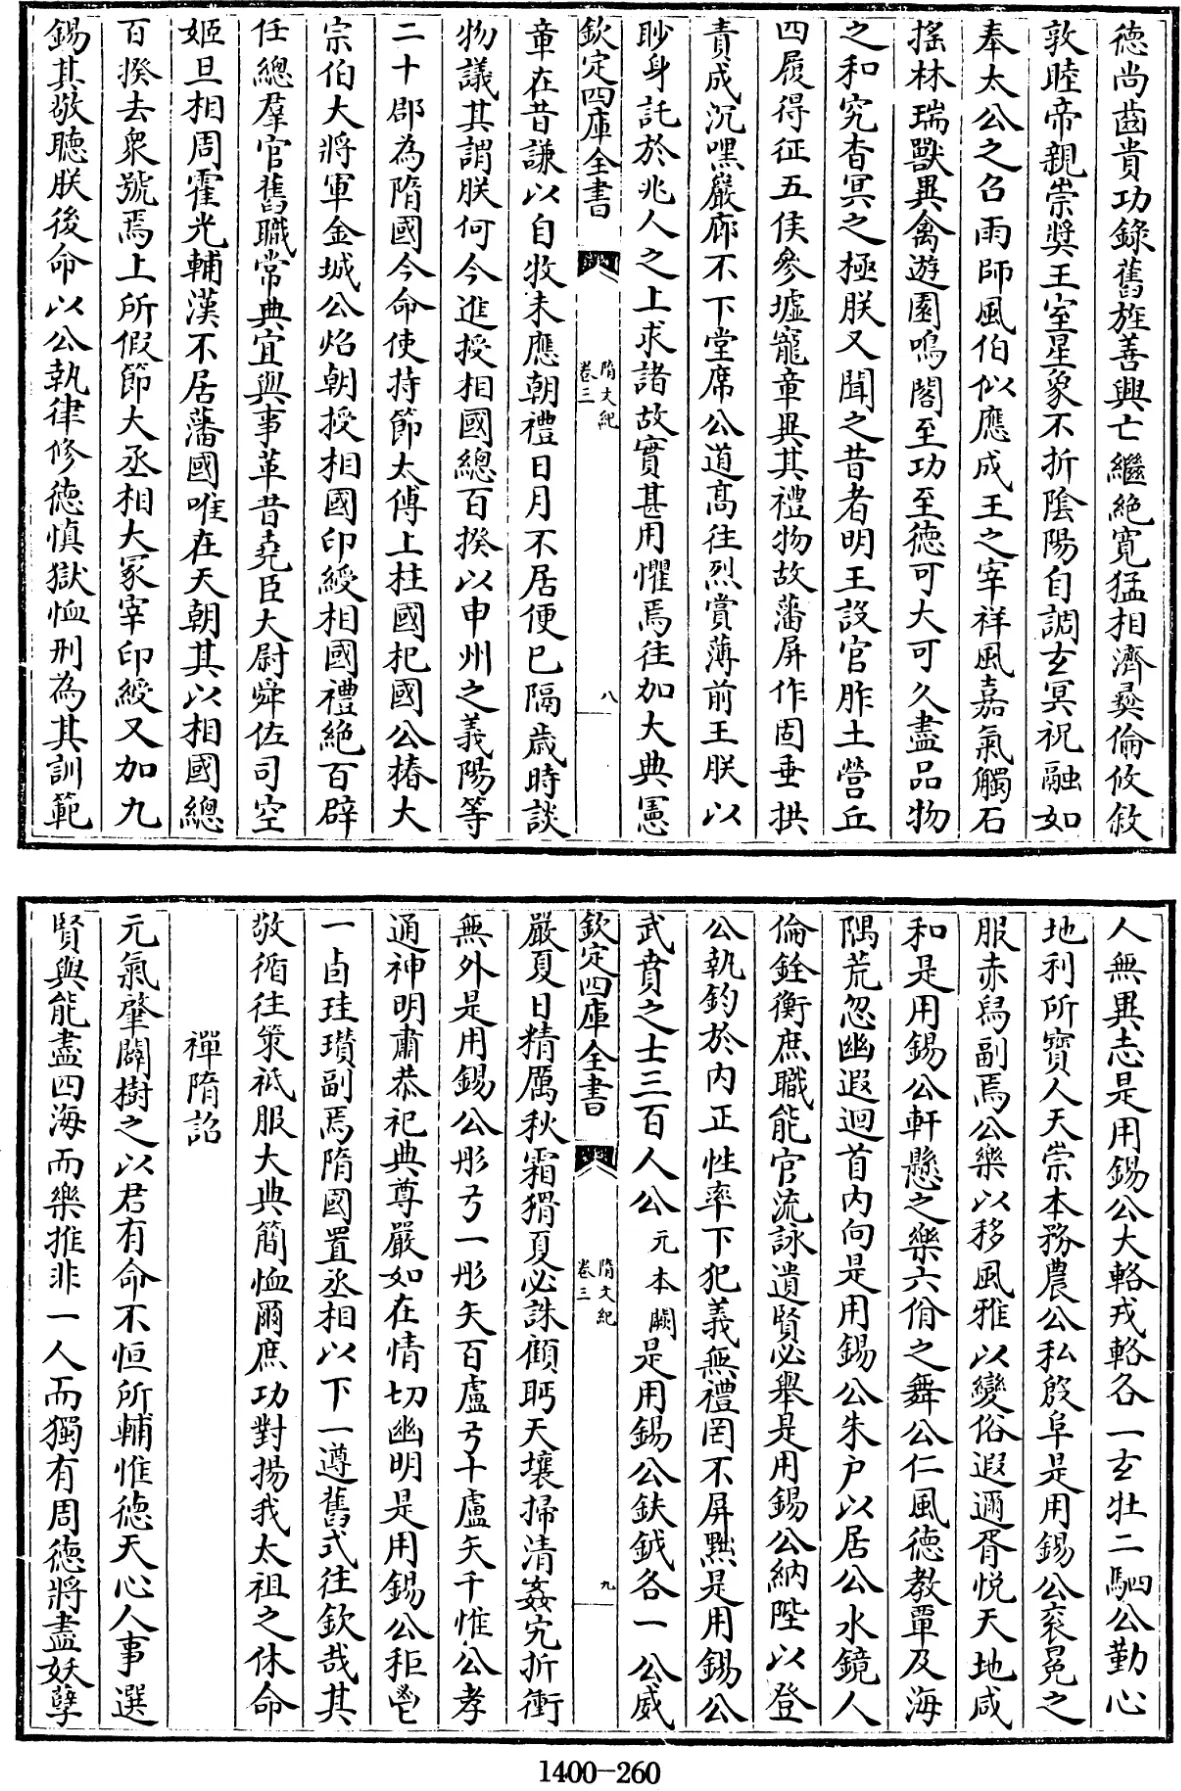 德尚齒貴功錄舊旌善興亡繼絶寛猛相濟彛倫攸敘
敦睦帝親崇奬王室星象不折陰陽自調玄冥祝融如
奉太公之召雨師風伯似應成王之宰祥風嘉氣觸石
搖林瑞獸異禽遊園鳴閣至功至德可大可久盡品物
之和究杳冥之極朕又聞之昔者明王設官胙土營丘
四履得征五侯參墟寵章異其禮物故藩屏作固垂拱
責成沉嘿巖廊不下堂席公道髙往烈賞薄前王朕以
眇身託於兆人之上求諸故實甚用懼焉往加大典憲
欽定四庫全書
隋文紀
卷三
八
章在昔謙以自牧未應朝禮日月不居便已隔歲時談
物議其謂朕何今進授相國總百揆以申州之義陽等
二十郡為隋國今命使持節太傅上柱國杞國公椿大
宗伯大將軍金城公煚朝授相國印綬相國禮絶百辟
任總羣官舊職常典宜與事革昔堯臣大尉舜佐司空
姬旦相周霍光輔漢不居藩國唯在天朝其以相國總
百揆去衆號焉上所假節大丞相大冢宰印綬又加九
錫其敬聽朕後命以公執律修德慎獄恤刑為其訓範
人無異志是用錫公大輅戎輅各一玄牡二駟公勤心
地利所寳人天崇本務農公私殷阜是用錫公衮冕之
服赤舄副焉公樂以移風雅以變俗遐邇胥悦天地咸
和是用錫公軒懸之樂六佾之舞公仁風德教覃及海
隅荒忽幽遐迴首内向是用錫公朱户以居公水鏡人
倫銓衡庶職能官流詠遺賢必舉是用錫公納陛以登
公執鈞於内正性率下犯義無禮罔不屏黜是用錫公
武賁之士三百人公元本闕是用錫公鈇鉞各一公威
欽定四庫全書
隋文紀
卷三
九
嚴夏日精厲秋霜猾夏必誅顧眄天壤掃清姦宄折衝
無外是用錫公彤弓一彤矢百盧弓十盧矢千惟公孝
通神明肅恭祀典尊嚴如在情切幽明是用錫公秬鬯
一卣珪瓉副焉隋國置丞相以下一遵舊式往欽哉其
敬循往策祗服大典簡恤爾庶功對揚我太祖之休命
禪隋詔
元氣肇闢樹之以君有命不恒所輔惟德天心人事選
賢與能盡四海而樂推非一人而獨有周德將盡妖孽
1400-260